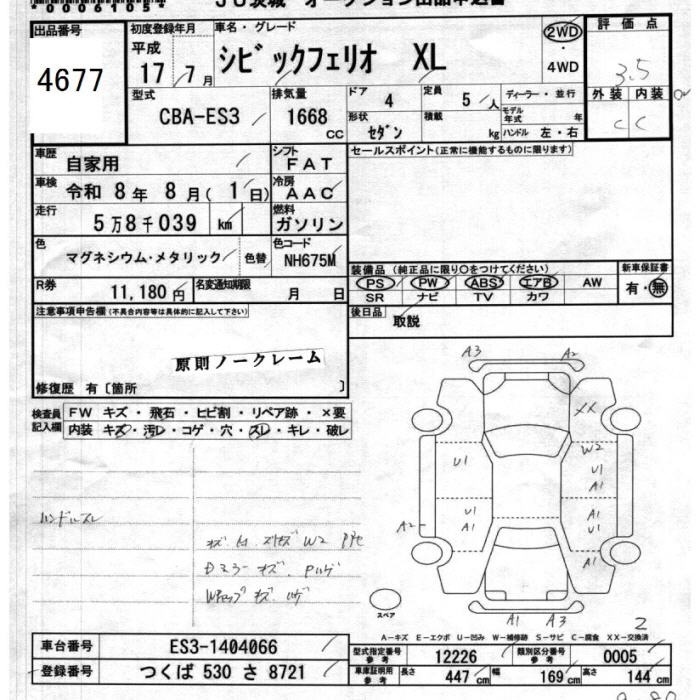 *0006105*
JU茨城 オークション出品申込書
出品番号 初度登録年月 車名・グレード 評価点
4677
平成 17 / 7月 シビックフェリオ XL
2WD ・ 4WD
3.5
外装 内装
C C
型式 排気量 ドア 定員 ディーラー・並行
CBA-ES3 1668 CC
4 5人
形状 積載 モデル年式 年
セダン kg ハンドル 左・右
車歴 自家用 シフト FAT
セールスポイント(正常に機能するものに限ります)
車検 令和 8年 8月(1日) 冷房 AAC
走行 5万8千039 km 燃料 ガソリン
色 マグネシウム・メタリック 色替 色コード NH675M
装備品(純正品に限り○をつけてください) 新車保証書
PS PW ABS エアB AW 有・無
SR ナビ TV カワ
R券 11,180円 名変通知期限 月 日
後日品 取説
注意事項申告欄(不具合内容等は具体的に記入して下さい)
原則ノークレーム
修復歴 有〔箇所 〕
検査員記入欄 FW キズ・飛石・ヒビ割・リペア跡・×要
内装 キズ・汚レ・コゲ・穴・スレ・キレ・破レ
A3 A2
XX
U1 W2
U1
A1
U1 A1
A1 U1
A2
A1
A1 A3
2
スペア
ハンドルスレ
A-キズ E-エクボ U-凹み W-補修跡 S-サビ C-腐食 XX-交換済
車台番号 ES3-1404066
型式指定番号 参考 12226 類別区分番号 参考 0005
登録番号 つくば 530 さ 8721
車庫証明用 参考 長さ 447cm 幅 169cm 高さ 144cm